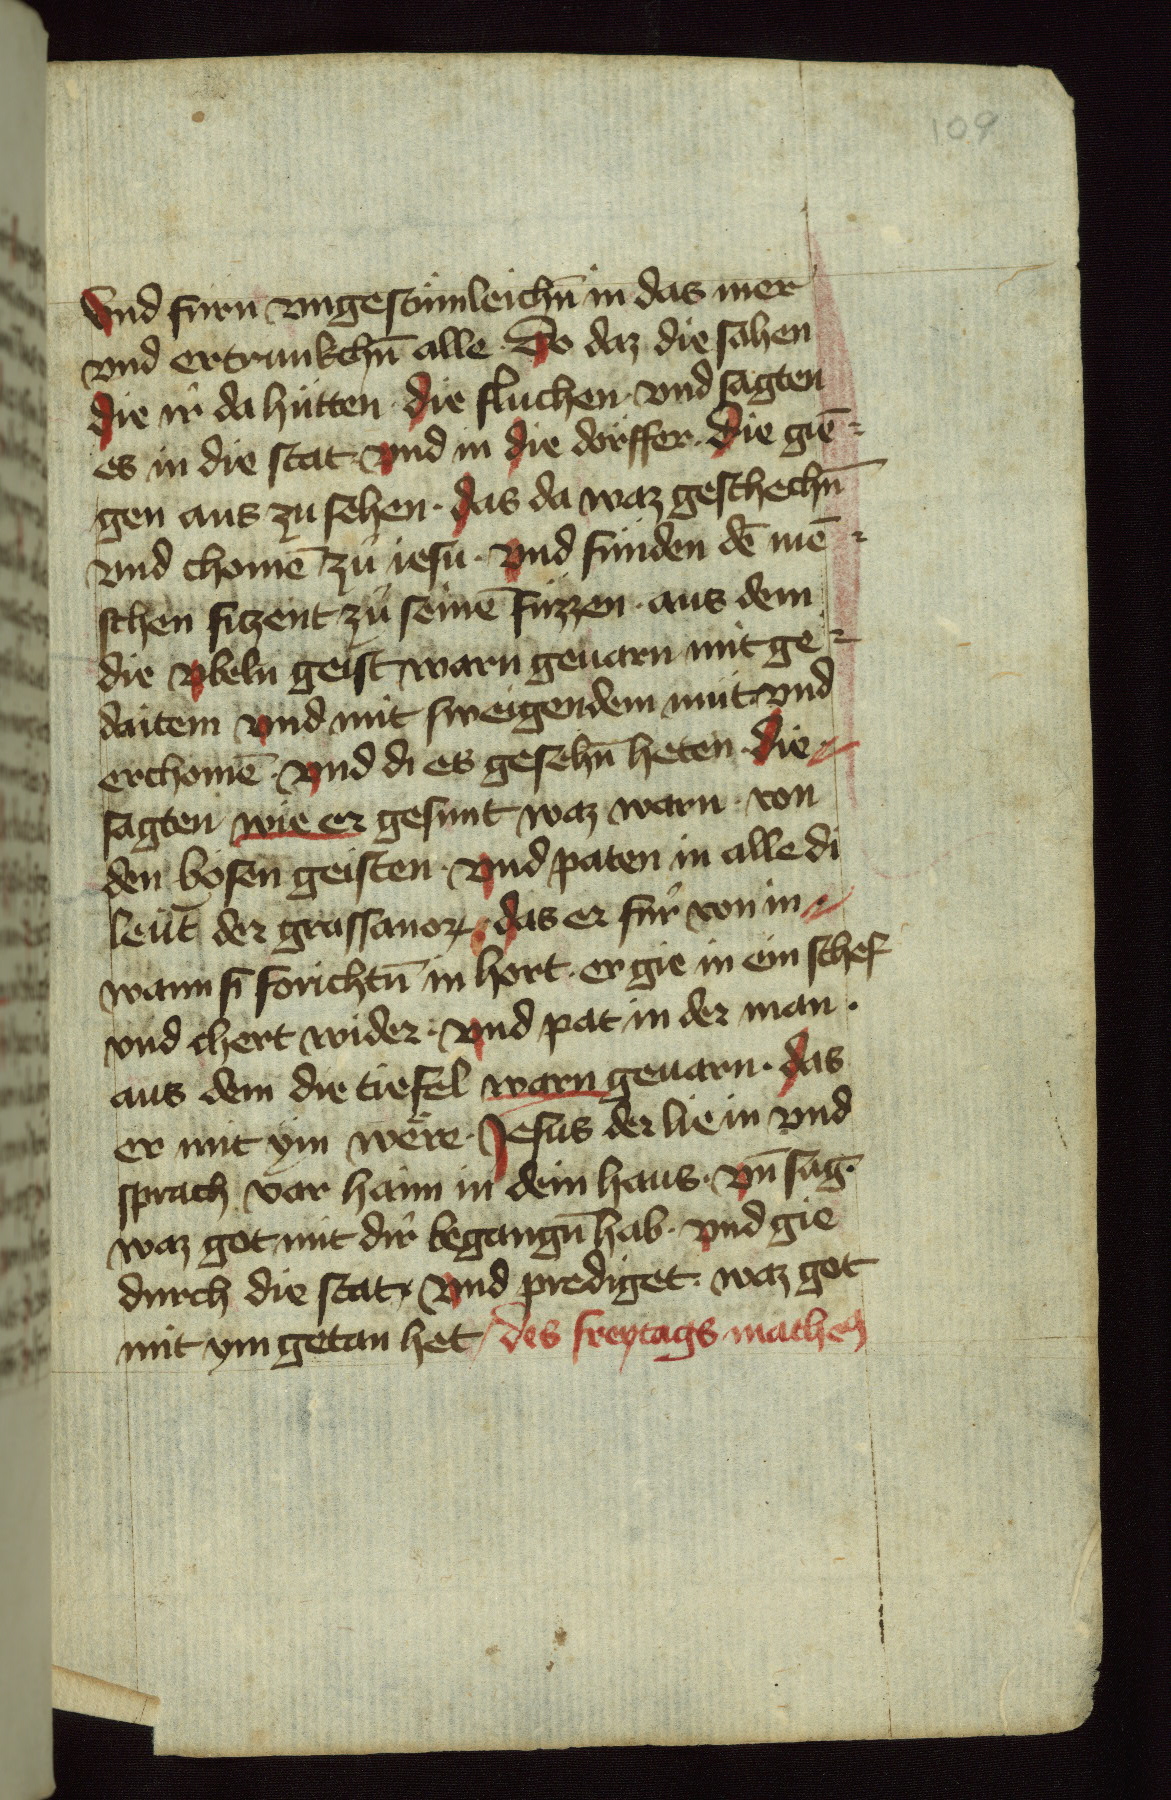 109
Vnd furn vngestümleichn̄ in das mer
vnd ertrankchn̄ alle · Do daz die sahen
die ir da hütten · die fluchen · vnd sagten
es in die stat · vnd in die dörffer · Die gīe=
gen aus zu sehen · das da waz geschechn̄
vnd chomē zů iesu · vnd fünden dē mē=
schen siczent zů seinē füzzen · aus dem
die vbeln geist warn geuarn mit ge=
daitem vnd mit sweigendem müt vnd
erchomē · vnd di es gesehn̄ heten · die
sagten wie er gesunt waz warn · von
den bösen geisten · vnd paten in alle di
leüt der grassanorꝝ · das er für von in
wann si forichtn̄ in hort · er gie in ein schef
vnd chert wider · vnd pat in der man ·
aus dem die tiefel warn geuarn · das
er mit ym wëre · Jesus der lie in vnd
sprach var haim in dein haus · vn̄ sag ·
waz got mit dir begangn̄ hab · vnd gie
durch die stat · vnd prediget · waz got
mit ym getan het / des freytags mathei